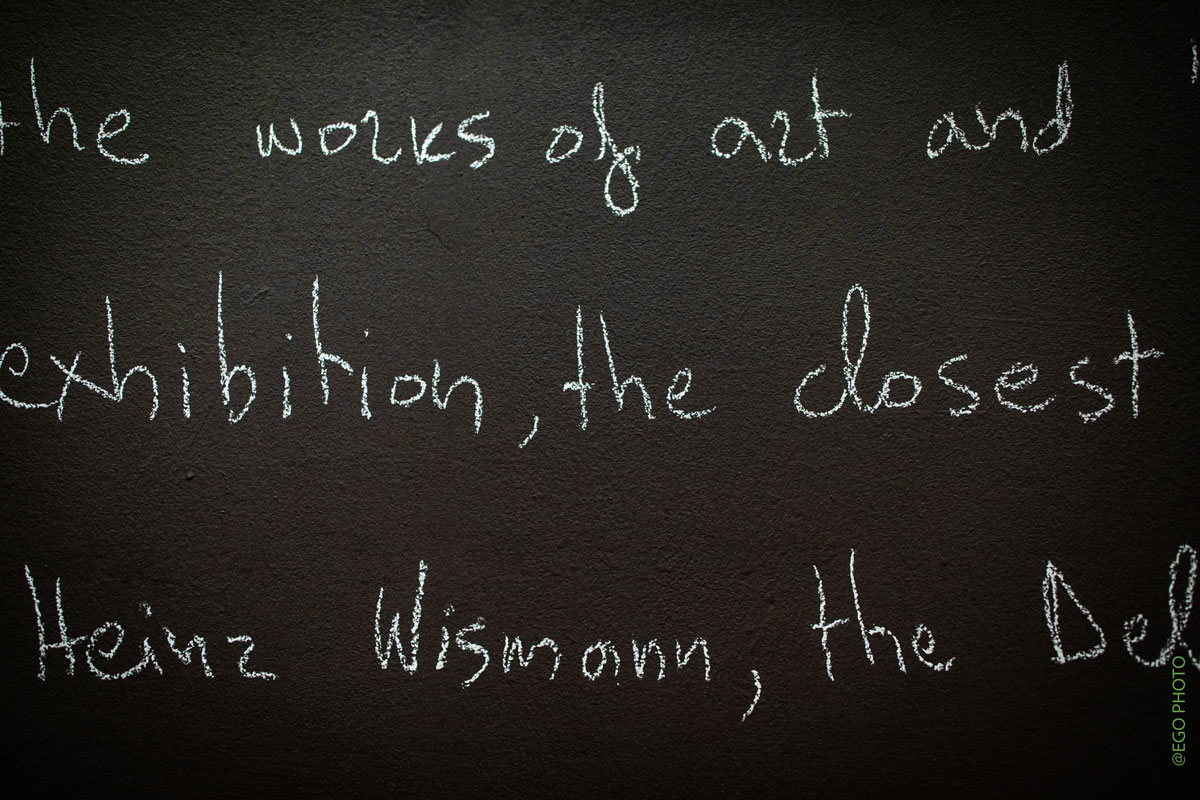 the works of art and
exhibition, the closest
Heinz Wismann, the Del
@EGO PHOTO